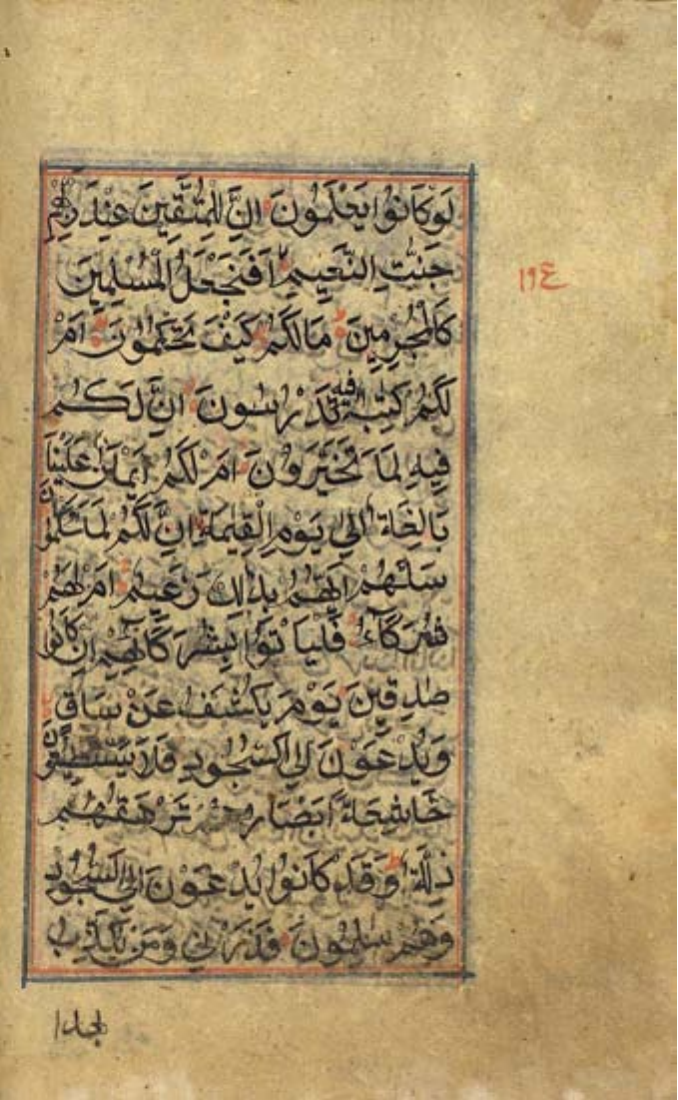 لَوْكَانُوا يَعْلَمُونَ اِنَّ لِلْمُتَّقِينَ عِنْدَ رَبِّهِمْ
جَنّٰتِ النَّعِيمِ اَفَنَجْعَلُ الْمُسْلِمِينَ
كَالْمُجْرِمِينَ مَالَكُمْ كَيْفَ تَحْكُمُونَ اَمْ
لَكُمْ كِتٰبٌ فِيهِ تَدْرُسُونَ اِنَّ لَكُمْ
فِيهِ لَمَا تَخَيَّرُونَ اَمْ لَكُمْ اَيْمَانٌ عَلَيْنَا
بَالِغَةٌ اِلٰى يَوْمِ الْقِيٰمَةِ اِنَّ لَكُمْ لَمَا تَحْكُمُونَ
سَلْهُمْ اَيُّهُمْ بِذٰلِكَ زَعِيمٌ اَمْ لَهُمْ
شُرَكَآءُ فَلْيَاْتُوا بِشُرَكَآئِهِمْ اِنْ كَانُوا
صٰدِقِينَ يَوْمَ يُكْشَفُ عَنْ سَاقٍ
وَيُدْعَوْنَ اِلَى السُّجُودِ فَلَا يَسْتَطِيعُونَ
خَاشِعَةً اَبْصَارُهُمْ تَرْهَقُهُمْ
ذِلَّةٌ وَقَدْ كَانُوا يُدْعَوْنَ اِلَى السُّجُودِ
وَهُمْ سٰلِمُونَ فَذَرْنِي وَمَنْ يُكَذِّبُ